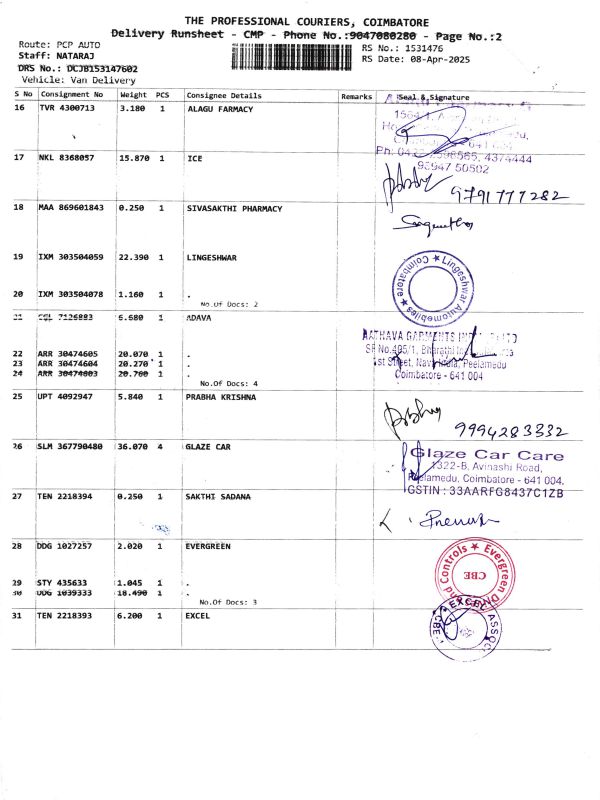 THE PROFESSIONAL COURIERS, COIMBATORE
Delivery Runsheet - CMP - Phone No.:9047080280 - Page No.:2
Route: PCP AUTO
RS No.: 1531476
Staff: NATARAJ
RS Date: 08-Apr-2025
DRS No.: DCJB153147602
Vehicle: Van Delivery
S No Consignment No Weight PCS Consignee Details Remarks Seal & Signature
16 TVR 4300713 3.180 1 ALAGU FARMACY
641
Ph: 4374444
93947 50502
17 NKL 8368057 15.870 1 ICE
9791777282
18 MAA 869601843 0.250 1 SIVASAKTHI PHARMACY
19 IXM 303504059 22.390 1 LINGESHWAR
Lingeshwar Automobiles ★ Coimbatore ★
20 IXM 303504078 1.160 1 .
No.Of Docs: 2
21 7126883 6.680 1 ADAVA
GARMENTS
SF No.405/1, Bharathi
1st Street, Peelamedu
Coimbatore - 641 004
22 ARR 30474605 20.070 1 .
23 ARR 30474604 20.270 1 .
24 ARR 30474603 20.760 1 .
No.Of Docs: 4
25 UPT 4092947 5.840 1 PRABHA KRISHNA
9994283332
26 SLM 367790480 36.070 4 GLAZE CAR
Glaze Car Care
1322-B, Avinashi Road,
Peelamedu, Coimbatore - 641 004.
GSTIN : 33AARFG8437C1ZB
27 TEN 2218394 0.250 1 SAKTHI SADANA
28 DDG 1027257 2.020 1 EVERGREEN
Evergreen and Controls ★
CBE
29 STY 435633 1.045 1 .
30 DDG 1039333 18.490 1 .
No.Of Docs: 3
31 TEN 2218393 6.200 1 EXCEL
EXCEL ASSOC CBE